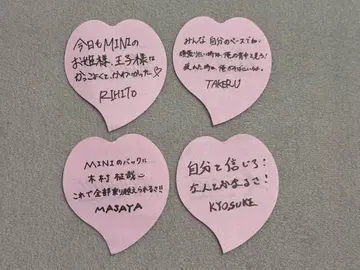 今日もMINIの
お姫様、王子様は
かっこよくて、かわいかった♡
RIHITO
みんな自分のペースでね。
頑張りたい時は、俺の背中を見ろ!
疲れた時は、俺がそばにいるから。
TAKERU
MINIのバックに
木村柾哉
これで全部乗り越えられるさ!!
MASAYA
自分を信じろ!
なんとかなるさ!
KYOSUKE